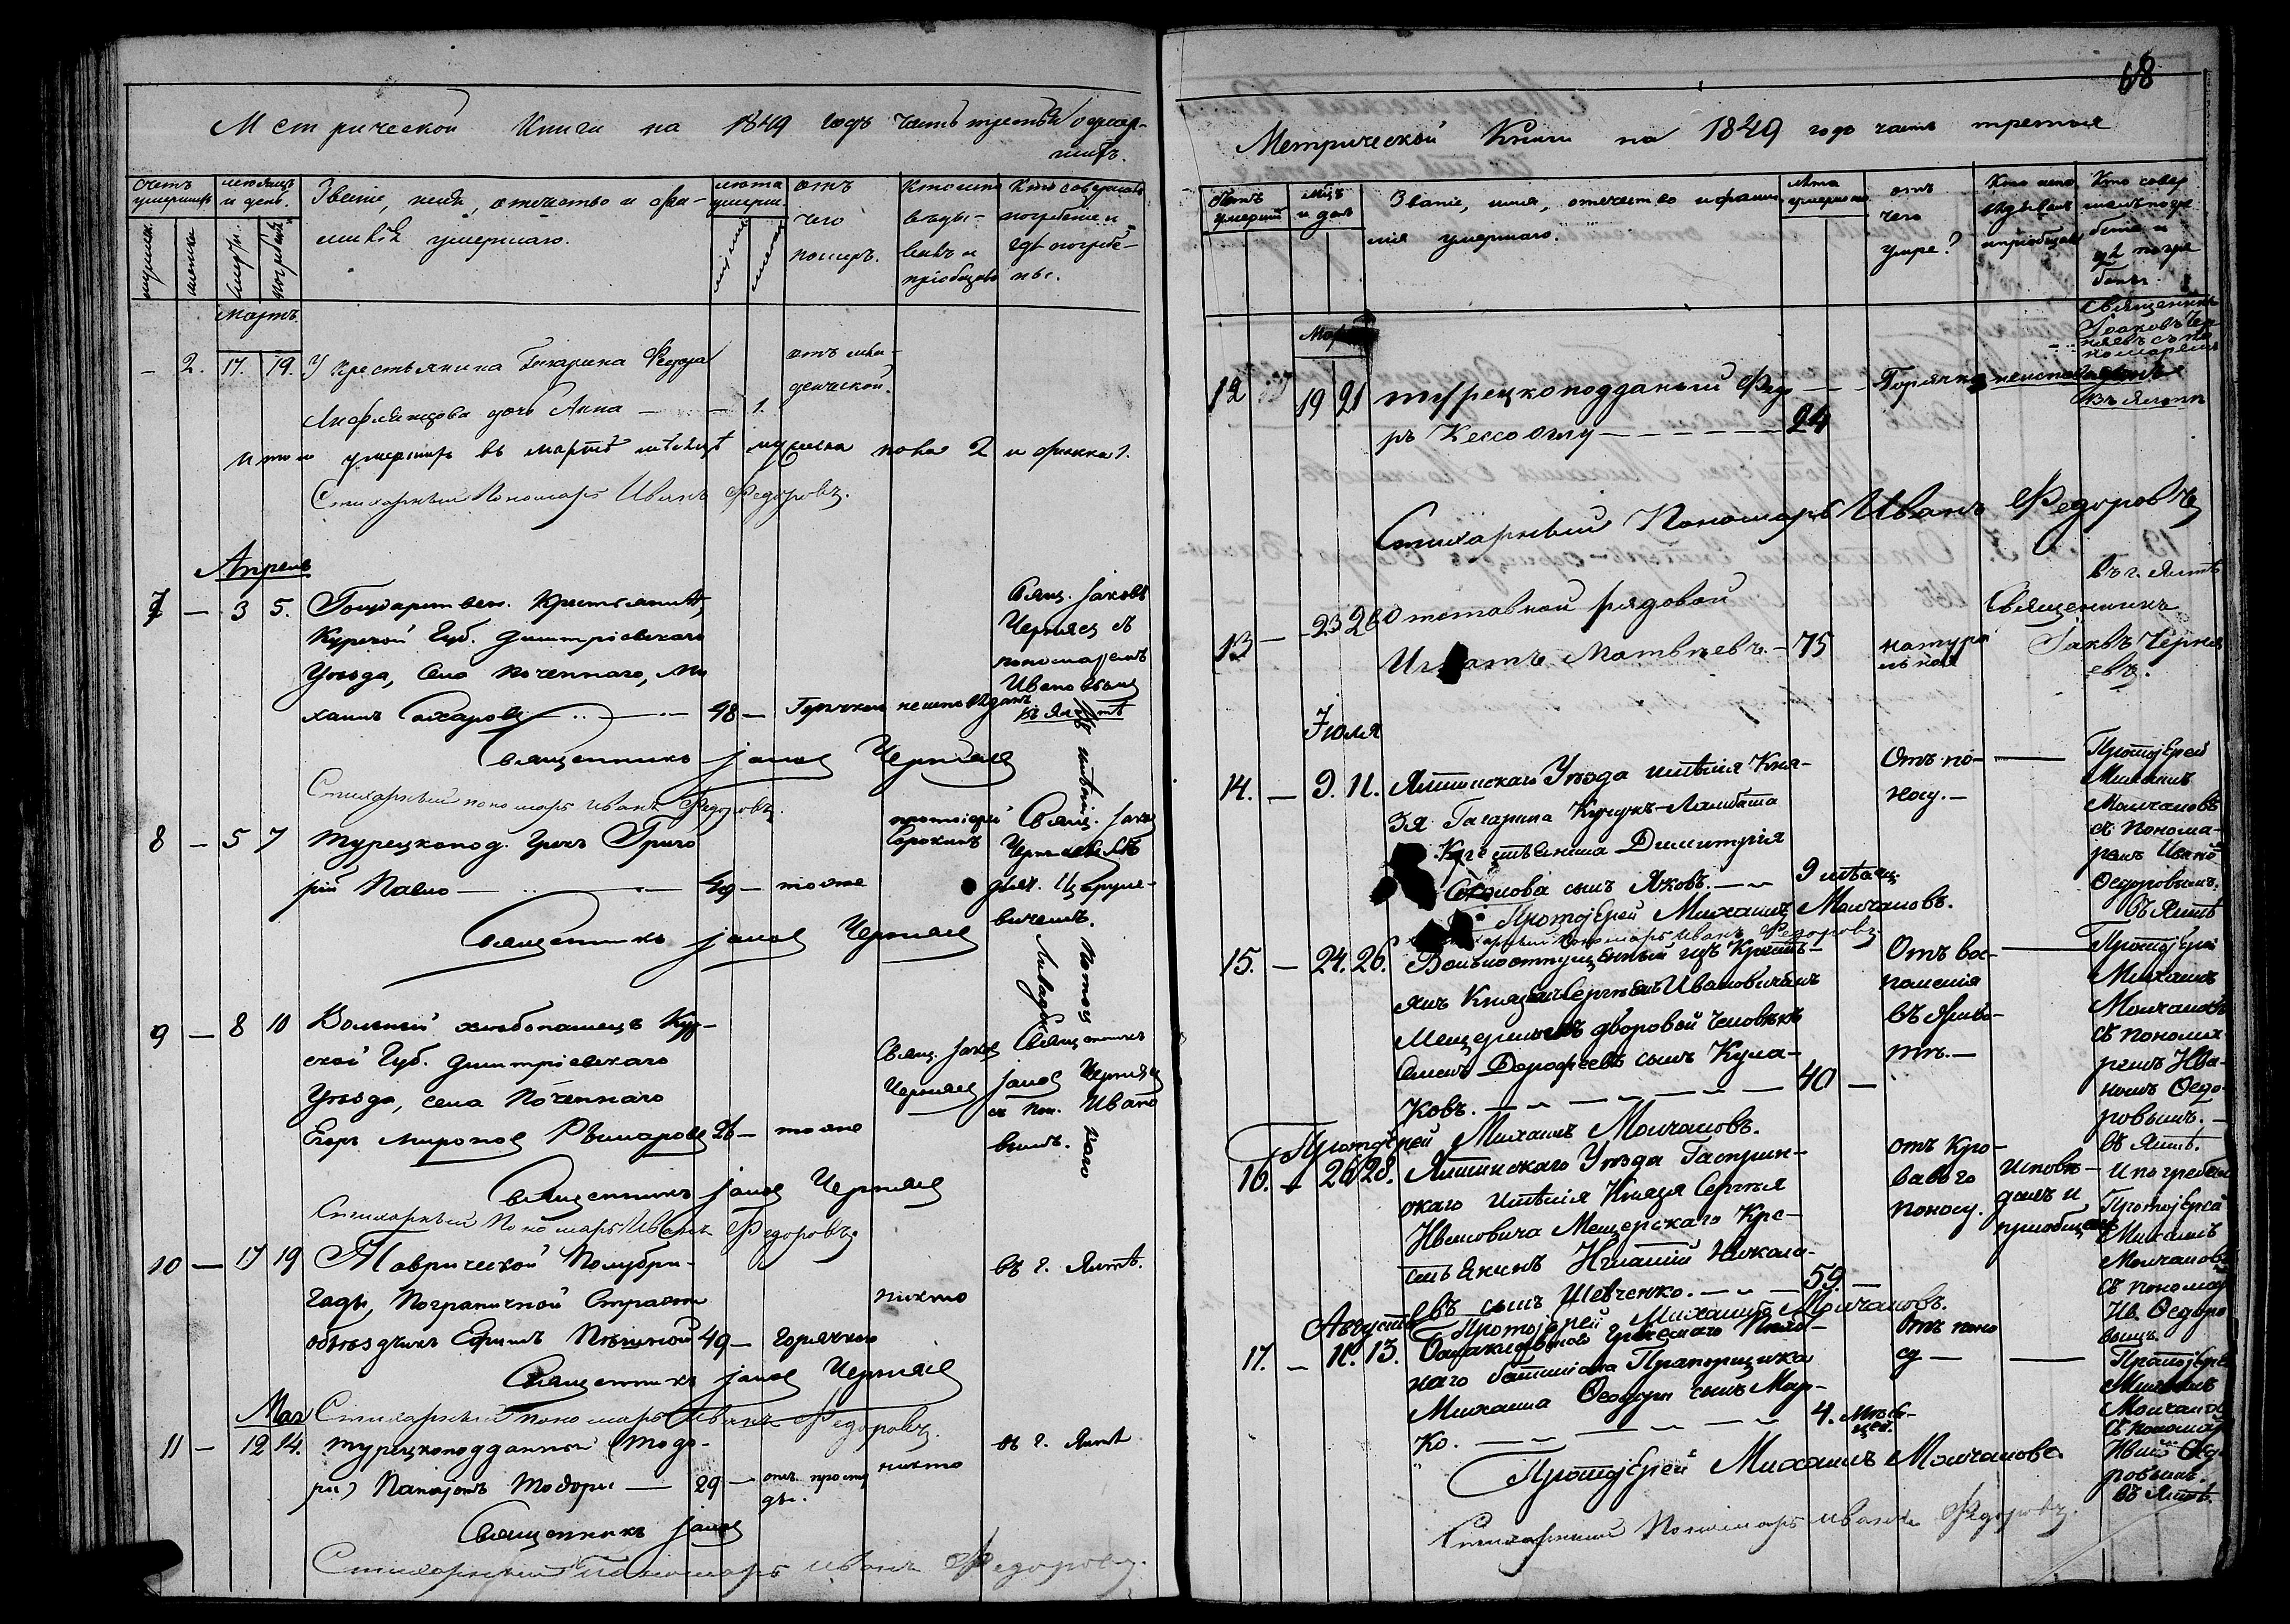 Метрической Книги на 1849 годъ часть третья о умер-
шихъ.
счетъ умершихъ
мѣсяцъ и день.
Званіе, имя, отечество и фа-
милія умершаго.
лѣта умерш.
отъ чего померъ.
Кто испо-
вѣды-
валъ и
пріобщалъ
Кто совершалъ
погребеніе и
гдѣ погребе-
ны.
Мартъ.
– 2. 17. 19. У крестьянина Гагарина Федора
отъ мла-
денческой.
дочь Анна — — 1.
Итого умершихъ въ мартѣ мѣсяцѣ мужеска пола 2 и женска 1.
Стихарный Пономарь Иванъ Федоровъ.
Апрель
7 — 3 5. Государствен. Крестьянинъ,
Курской Губ. Дмитріевскаго
Уѣзда, Села Поченнаго, Ми
хаилъ Сахаровъ — 48 — Горячкою неисповѣданъ
Свящ. Іаковъ
Черняев съ
пономаремъ
Ивановымъ
въ Ялтѣ
Священникъ Іаков Черняев
Стихарный пономарь Иванъ Федоровъ.
8 — 5 7 Турецкопод. Грекъ Григо
рій Павло — 49 — тоже
протоіерей
Сорокинъ
Свящ. Іаков
Въ имѣніи
Потоц
каго
Ливадіи
Священникъ Іаков Черняев
9 — 8 10 Вольный хлѣбопашецъ Кур-
ской Губ. Дмитріевскаго
Уѣзда, села Поченнаго
Егоръ Миронов 26 — тоже
Свящ. Іаков
Черняев
Священникъ
Іаков Черняев
съ пон. Ивано
вымъ.
Священникъ Іаков Черняев
Стихарный Пономарь Иванъ Федоровъ.
10 — 17 19 Таврической Полубри-
гады, Пограничной Стражи
объѣздчикъ Ефимъ 49 — Горячкою
никто
въ г. Ялтѣ.
Священникъ Іаков Черняев
Мая Стихарный пономарь Иванъ Федоровъ.
11 — 12 14. Турецкоподданный (Тодо-
ри) Панаіотъ Тодори — 29 — отъ просту
ды.
никто
въ г. Ялтѣ
Священникъ Іаков
Стихарный Пономарь Иванъ Федоровъ.
68
Метрической Книги на 1849 годъ часть третья
Счетъ умершихъ
мѣц. и день
Званіе, имя, отечество и фами
лія умершаго.
лѣта умершаго
отъ чего умре?
Кто испо
вѣдывалъ
и пріобщалъ
Кто совер
шалъ погре
беніе и
гдѣ погре
бены.
Мар
Священникъ
Іаковъ Чер
няевъ съ по
номаремъ
12 19 21 Турецкоподданый Фед — — Горячкою неисповѣданъ
въ Ялтѣ
ръ Кессоглу — — — 24
Стихарный Пономарь Иванъ Федоровъ
въ г. Ялтѣ
13 — 23 26 Отставной рядовой
Игнатъ Матвѣевъ. — 75
натура
льной
Священникъ
Іаквъ Черня
евъ.
Іюля
14. — 9. 11. Ялтинскаго Уѣзда имѣнія Кня-
зя Гагарина Кучукъ-Ламбата
Крестьянина Димитрія
сынъ Яковъ. — 9 мѣсяц.
Отъ по-
носу. —
Протоіерей
Михаилъ
Молчановъ
съ понома-
ремъ Ивано
Ѳедоровымъ.
въ Ялтѣ
Протоіерей Михаилъ Молчановъ.
Пономарь Иванъ Федоровъ.
15. — 24. 26. Вольноотпущенный изъ Кресть-
янъ Княземъ Сергѣемъ Ивановичемъ
Мещерскимъ дворовой человѣкъ
Семенъ Дорофеевъ сынъ Кула-
ковъ. — — — 40 —
Отъ вос-
паленія
въ живо-
тѣ. —
Протоіерей
Михаилъ
Молчановъ
съ понома-
ремъ Ива-
номъ Ѳедо-
ровымъ. —
въ Ялтѣ.
Протоіерей Михаилъ Молчановъ.
16. — 26 28. Ялтинскаго Уѣзда Гасприн-
скаго имѣнія Князя Сергѣя
Ивановича Мещерскаго Кре-
стьянинъ Игнатій Никола-
евъ сынъ Шевченко. — — 59. —
отъ Кро-
ваваго
поносу.
исповѣ-
далъ и
пріобщалъ
и погребалъ
Протоіерей
Михаилъ
Молчановъ
съ пономар
Ив. Ѳедоро
вымъ.
Протоіерей Михаилъ Молчановъ.
Августъ
17. — 11. 13. Балаклавскаго Греческаго Пѣхо-
тнаго баталіона Прапорщика
Михаила Ѳеодори сынъ Мар-
ко. — — — 4. Мѣся-
цев.
Отъ поно
су —
Протоіерей
Михаилъ
Молчанов
съ пономар
Ивано Ѳедо
ровымъ.
въ Ялтѣ.
Протоіерей Михаилъ Молчановъ.
Стихарный Пономарь Иванъ Федоровъ.